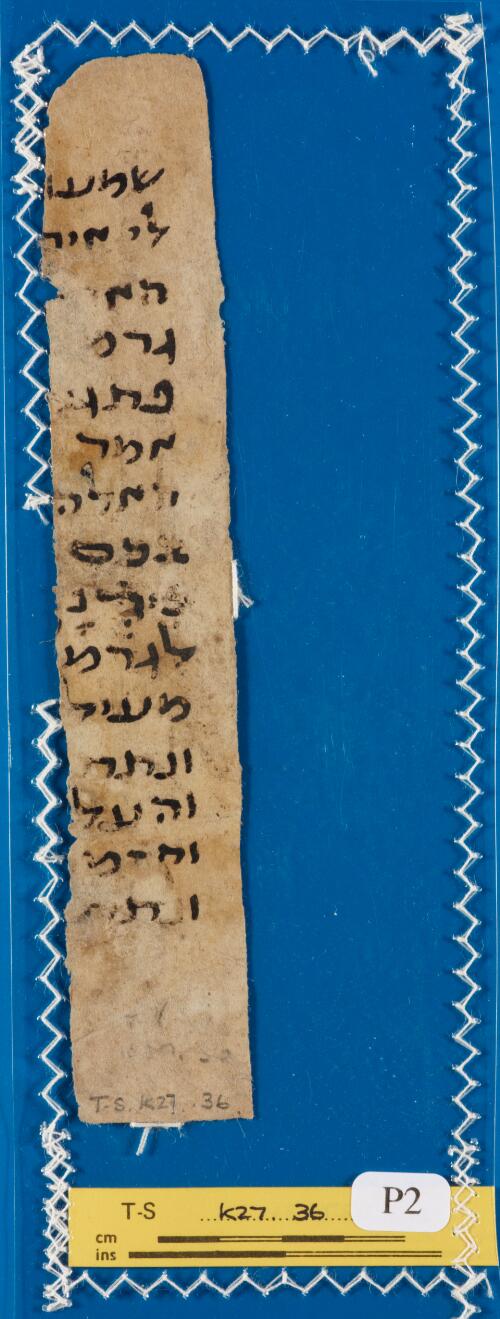 שמעו
לי איך
האי
גרמ
פתק
אמר
האלה
אפס
לגרמ
מעיל
ונתת
והעל
והרמ
ונתת
T-S. K27. 36
T-S K27 36
P2
cm
ins